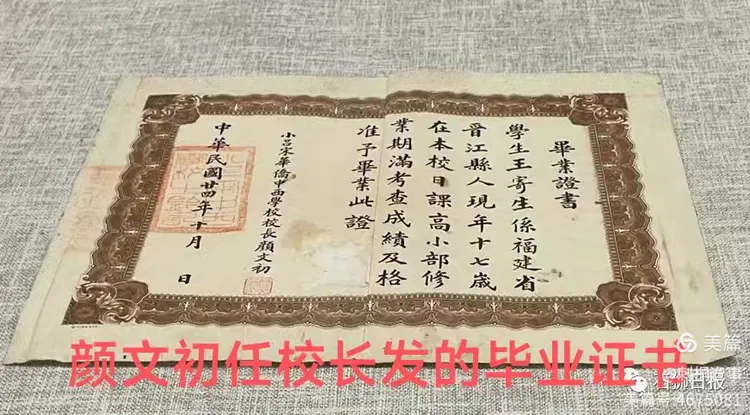 畢業證書
學生王寄生係福建省
晉江縣人現年十七歲
在本校日課高小部修
業期滿考查成績及格
准予畢業此證
小呂宋華僑中西學校校長顏文初
中華民國廿四年十月 日
颜文初任校长发的毕业证书
美篇
日报
美篇号 4675081